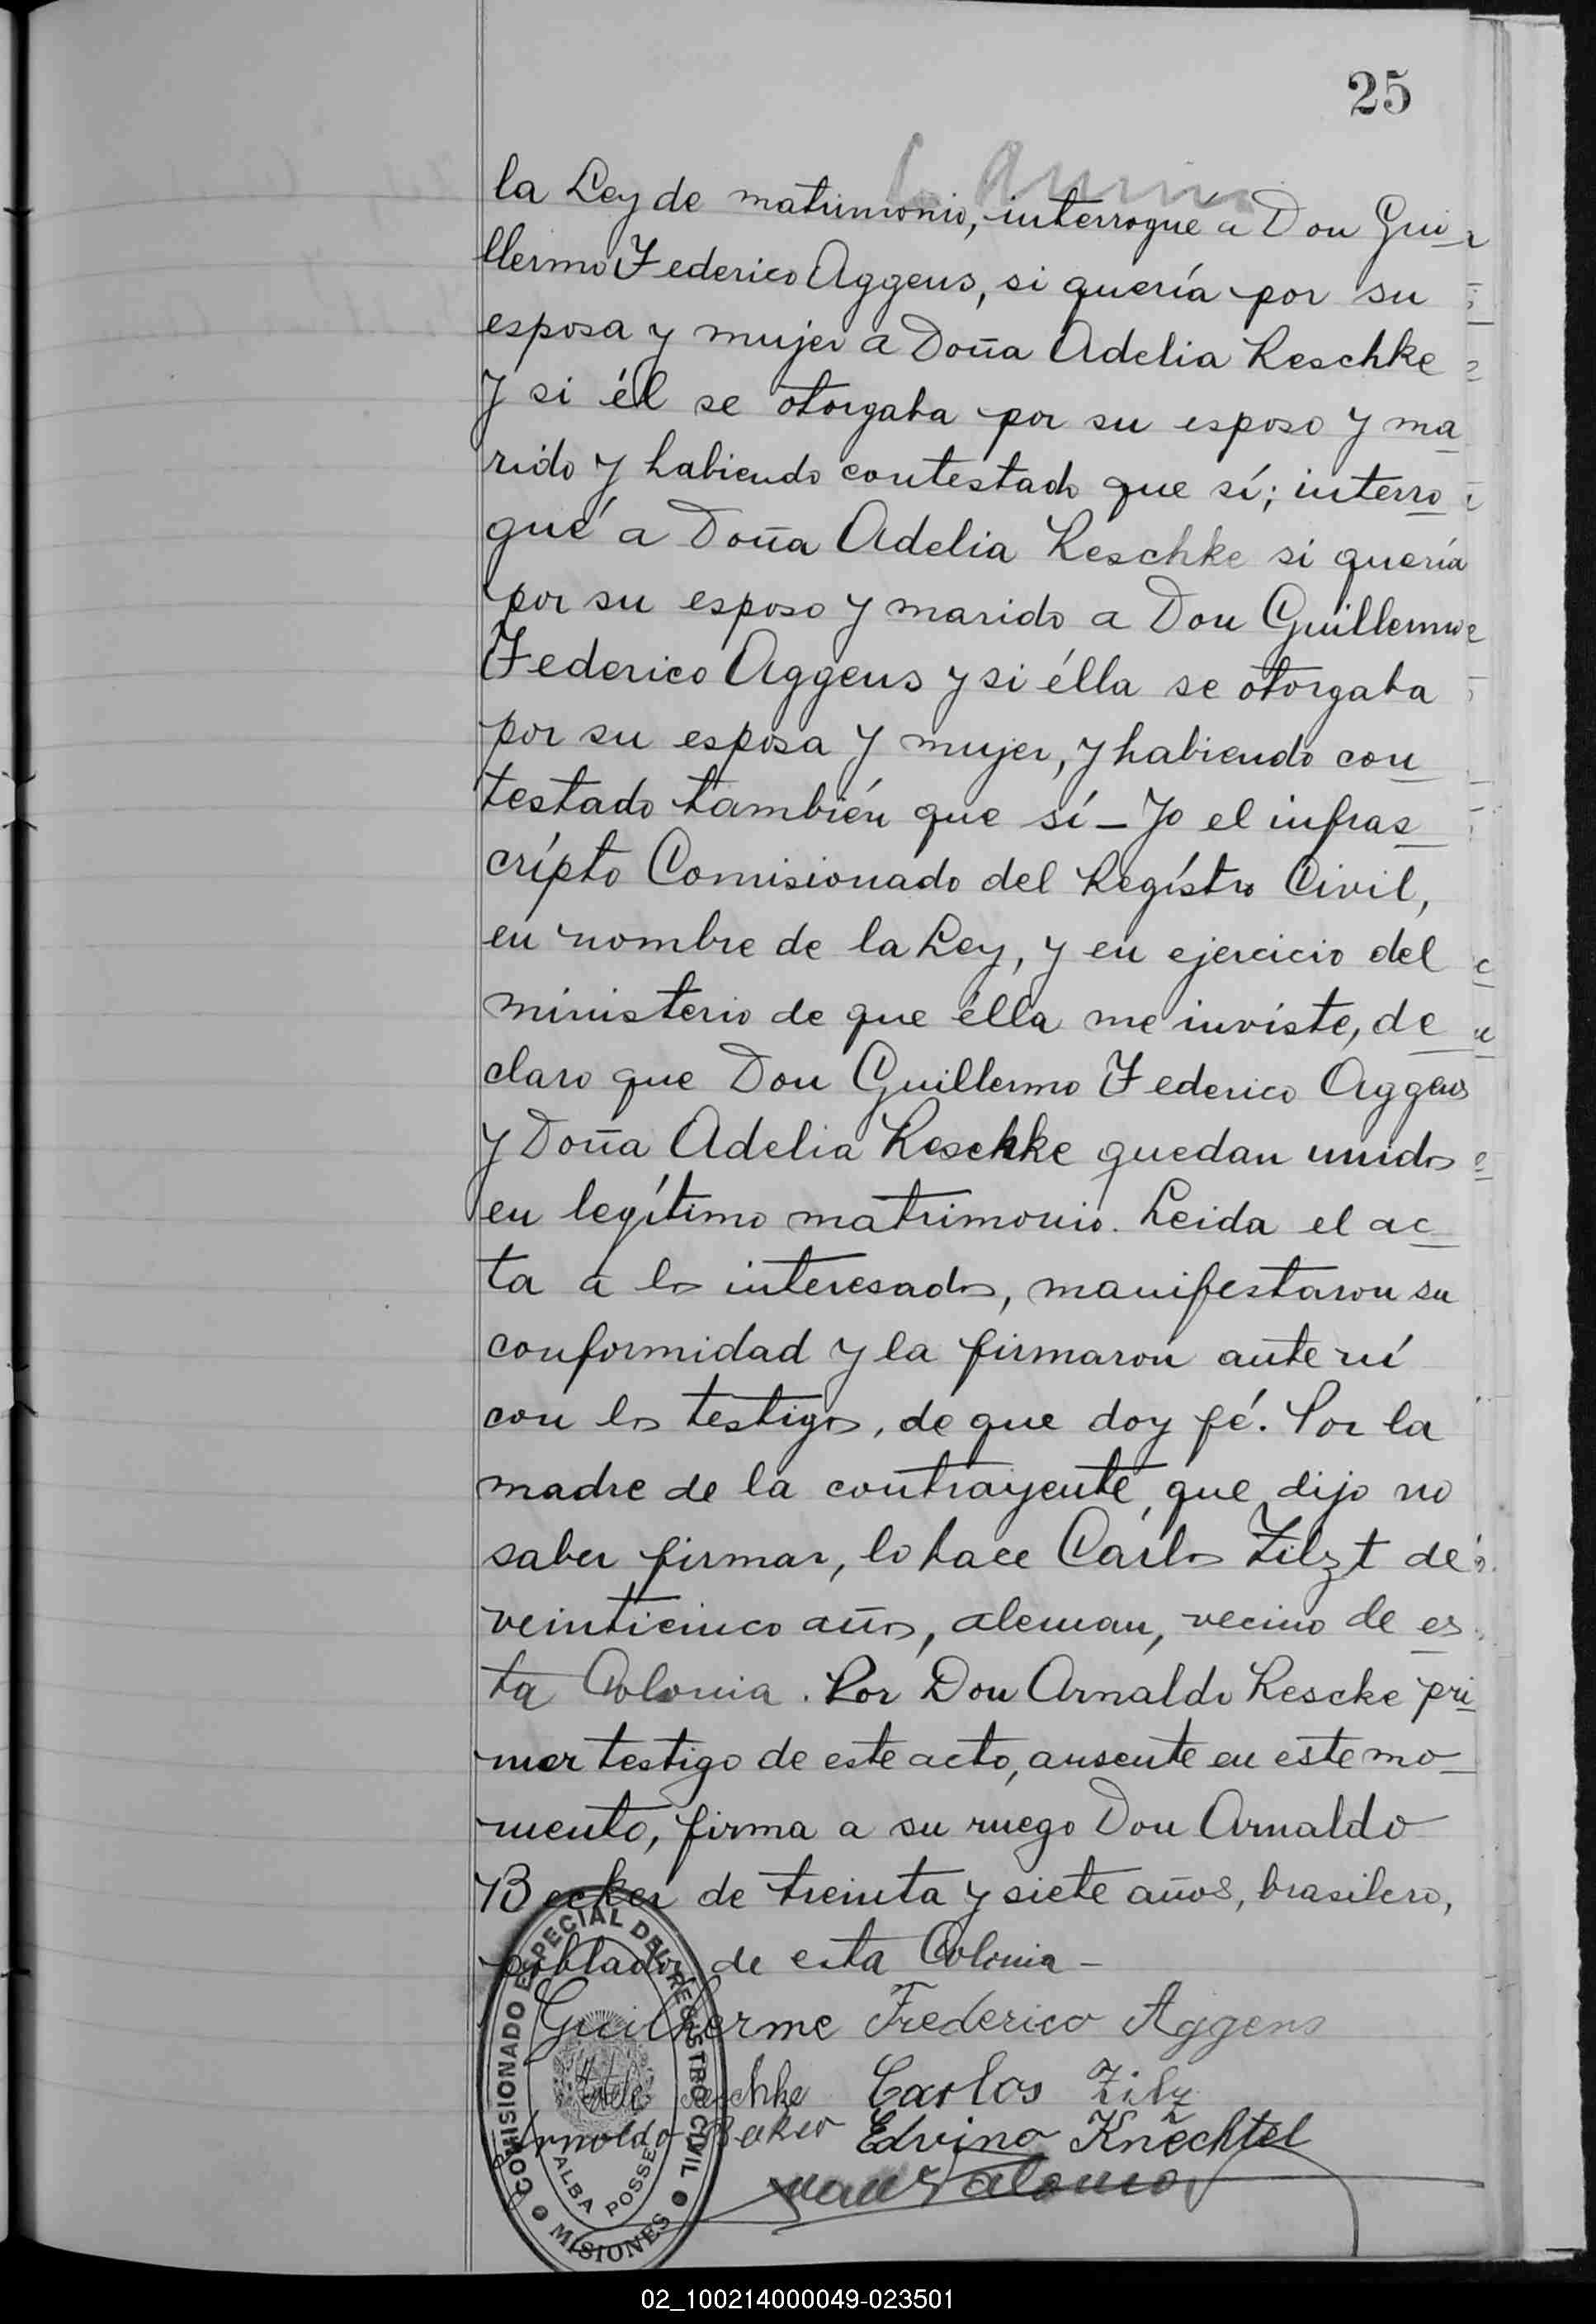 25
la Ley de matrimonio, interrogué a Don Gui
llermo Federico Aggens, si quería por su
esposa y mujer a Doña Adelia Reschke
y si él se otorgaba por su esposo y ma
rido y habiendo contestado que sí; interro
gué a Doña Adelia Reschke si quería
por su esposo y marido a Don Guillermo
Federico Aggens y si élla se otorgaba
por su esposa y mujer, y habiendo con
testado también que sí - Yo el infras
crípto Comisionado del Regístro Civil,
en nombre de la Ley, y en ejercicio del
ministerio de que élla me inviste, de
claro que Don Guillermo Federico Aggens
y Doña Adelia Reschke quedan unidos
en legítimo matrimonio. Leida el ac
ta a los interesados, manifestaron su
conformidad y la firmaron ante mí
con los testigos, de que doy fé. Por la
madre de la contrayente, que dijo no
saber firmar, lo hace Cárlos Zilzt de
veinticinco años, aleman, vecino de es
ta Colonia. Por Don Arnaldo Rescke pri
mer testigo de este acto, ausente en este mo
mento, firma a su ruego Don Arnaldo
Becker de treinta y siete años, brasilero,
poblador de esta Colonia -
Guilherme Frederico Aggens
Adele Reschke Carlos Zilz
Arnoldo Beker Edvino Knechtel
COMISIONADO ESPECIAL DEL REGISTRO CIVIL
ALBA POSSE
MISIONES
02_100214000049-023501